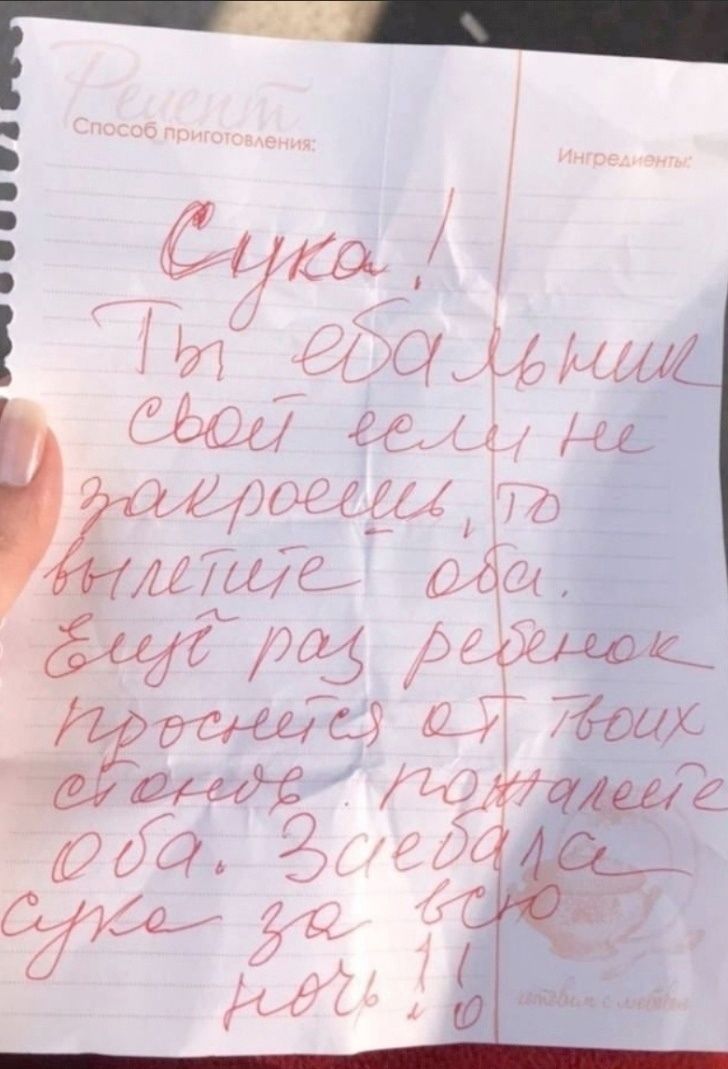 Рецепт
Способ приготовления:
Ингредиенты:
Сука!
Ты ебальник
свой если не
закроешь, то
вылетите оба.
Ещё раз ребенок
проснется от твоих
стонов. пожалеете
оба. Заебала
сука за всю
ночь!!
готовим с любовью